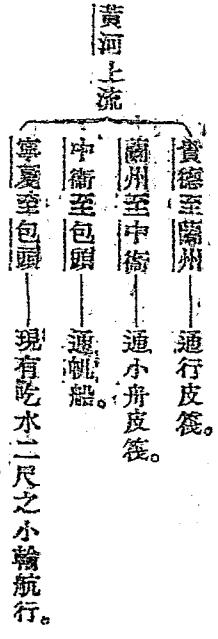 黃河上流
貴德至蘭州——通行皮筏。
蘭州至中衞——通小舟皮筏。
中衞至包頭——通帆船。
寧夏至包頭——現有吃水二尺之小輪航行。